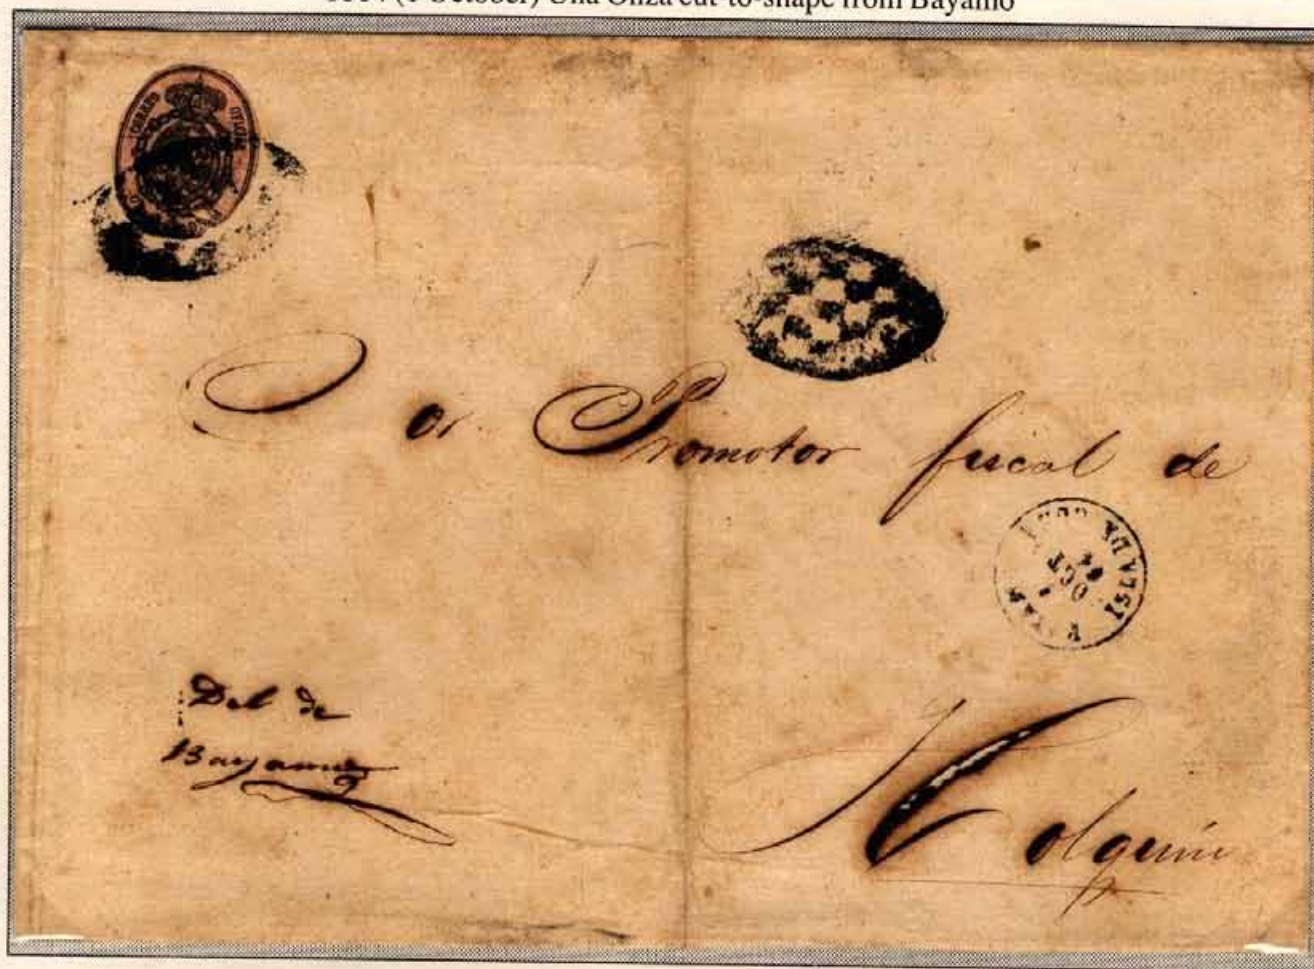 Una Onza cut-to-shape from Bayamo
CORREO OFICIAL
Sor Promotor fiscal de
ISLA DE CUBA
OCT
64
Del de
Bayamo
Holguin